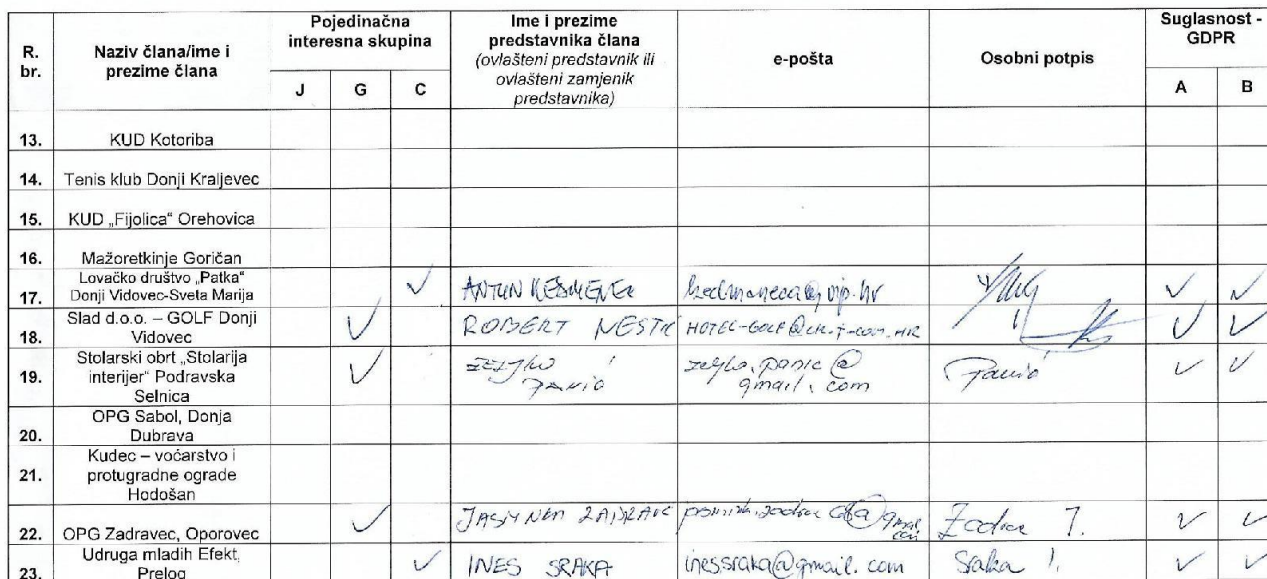 R. br. Naziv člana/ime i prezime člana Pojedinačna interesna skupina Ime i prezime predstavnika člana (ovlašteni predstavnik ili ovlašteni zamjenik predstavnika) e-pošta Osobni potpis Suglasnost - GDPR
J G C A B
13. KUD Kotoriba
14. Tenis klub Donji Kraljevec
15. KUD „Fijolica“ Orehovica
16. Mažoretkinje Goričan
17. Lovačko društvo „Patka“ Donji Vidovec-Sveta Marija ✓ ANTUN ✓ ✓
18. Slad d.o.o. – GOLF Donji Vidovec ✓ ROBERT NESTIĆ ✓ ✓
19. Stolarski obrt „Stolarija interijer“ Podravska Selnica ✓ ŽELJKO PANIĆ zeljko.panic@gmail.com Panić ✓ ✓
20. OPG Sabol, Donja Dubrava
21. Kudec – voćarstvo i protugradne ograde Hodošan
22. OPG Zadravec, Oporovec ✓ ✓ ✓
23. Udruga mladih Efekt, Prelog ✓ INES SRAKA inessraka@gmail.com Sraka I. ✓ ✓